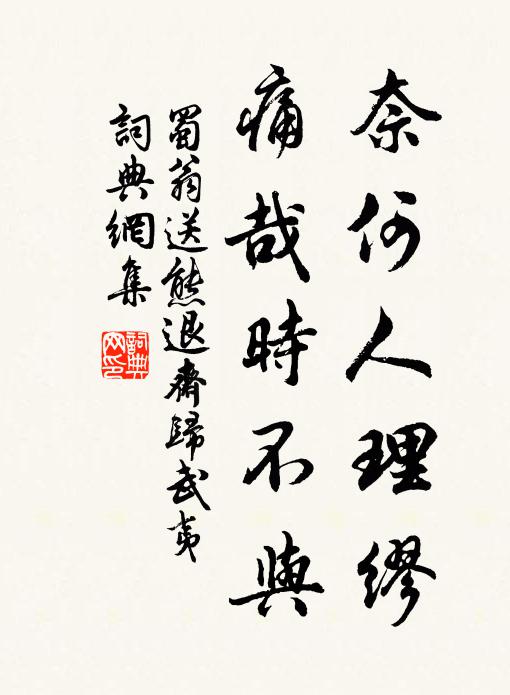 奈何人理繆
痛哉時不與
蜀翁送熊退齋歸武夷
詞典網集
詞典
網印